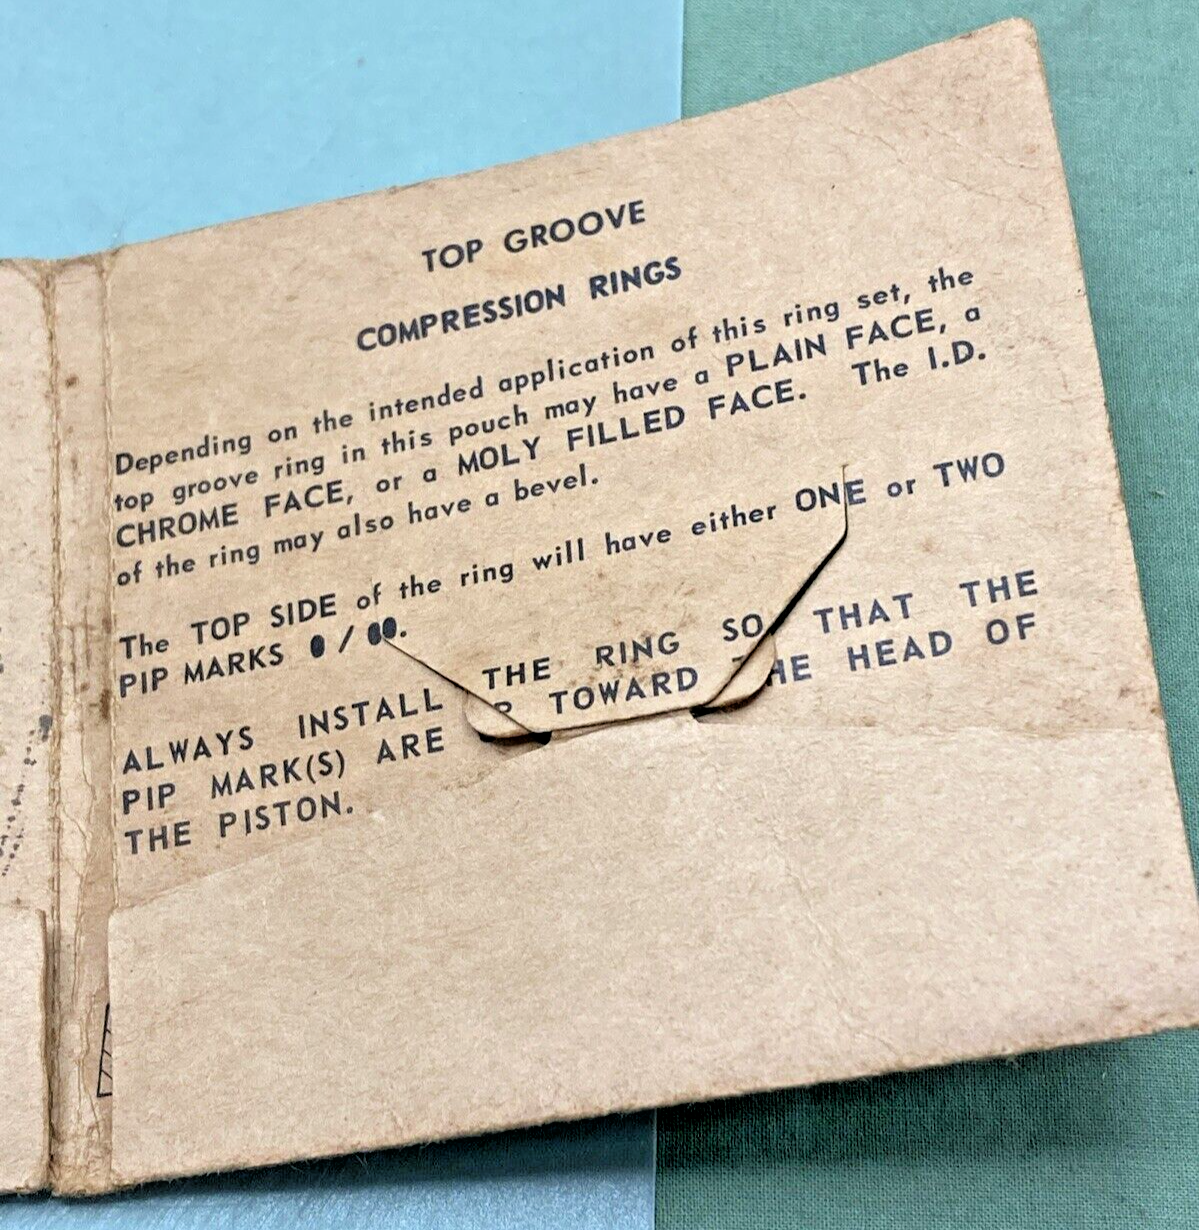 TOP GROOVE
COMPRESSION RINGS
Depending on the intended application of this ring set, the
top groove ring in this pouch may have a PLAIN FACE, a
CHROME FACE, or a MOLY FILLED FACE. The I.D.
of the ring may also have a bevel.
The TOP SIDE of the ring will have either ONE or TWO
PIP MARKS 0 / 00.
ALWAYS INSTALL THE RING SO THAT THE
PIP MARK(S) ARE TOWARD THE HEAD OF
THE PISTON.